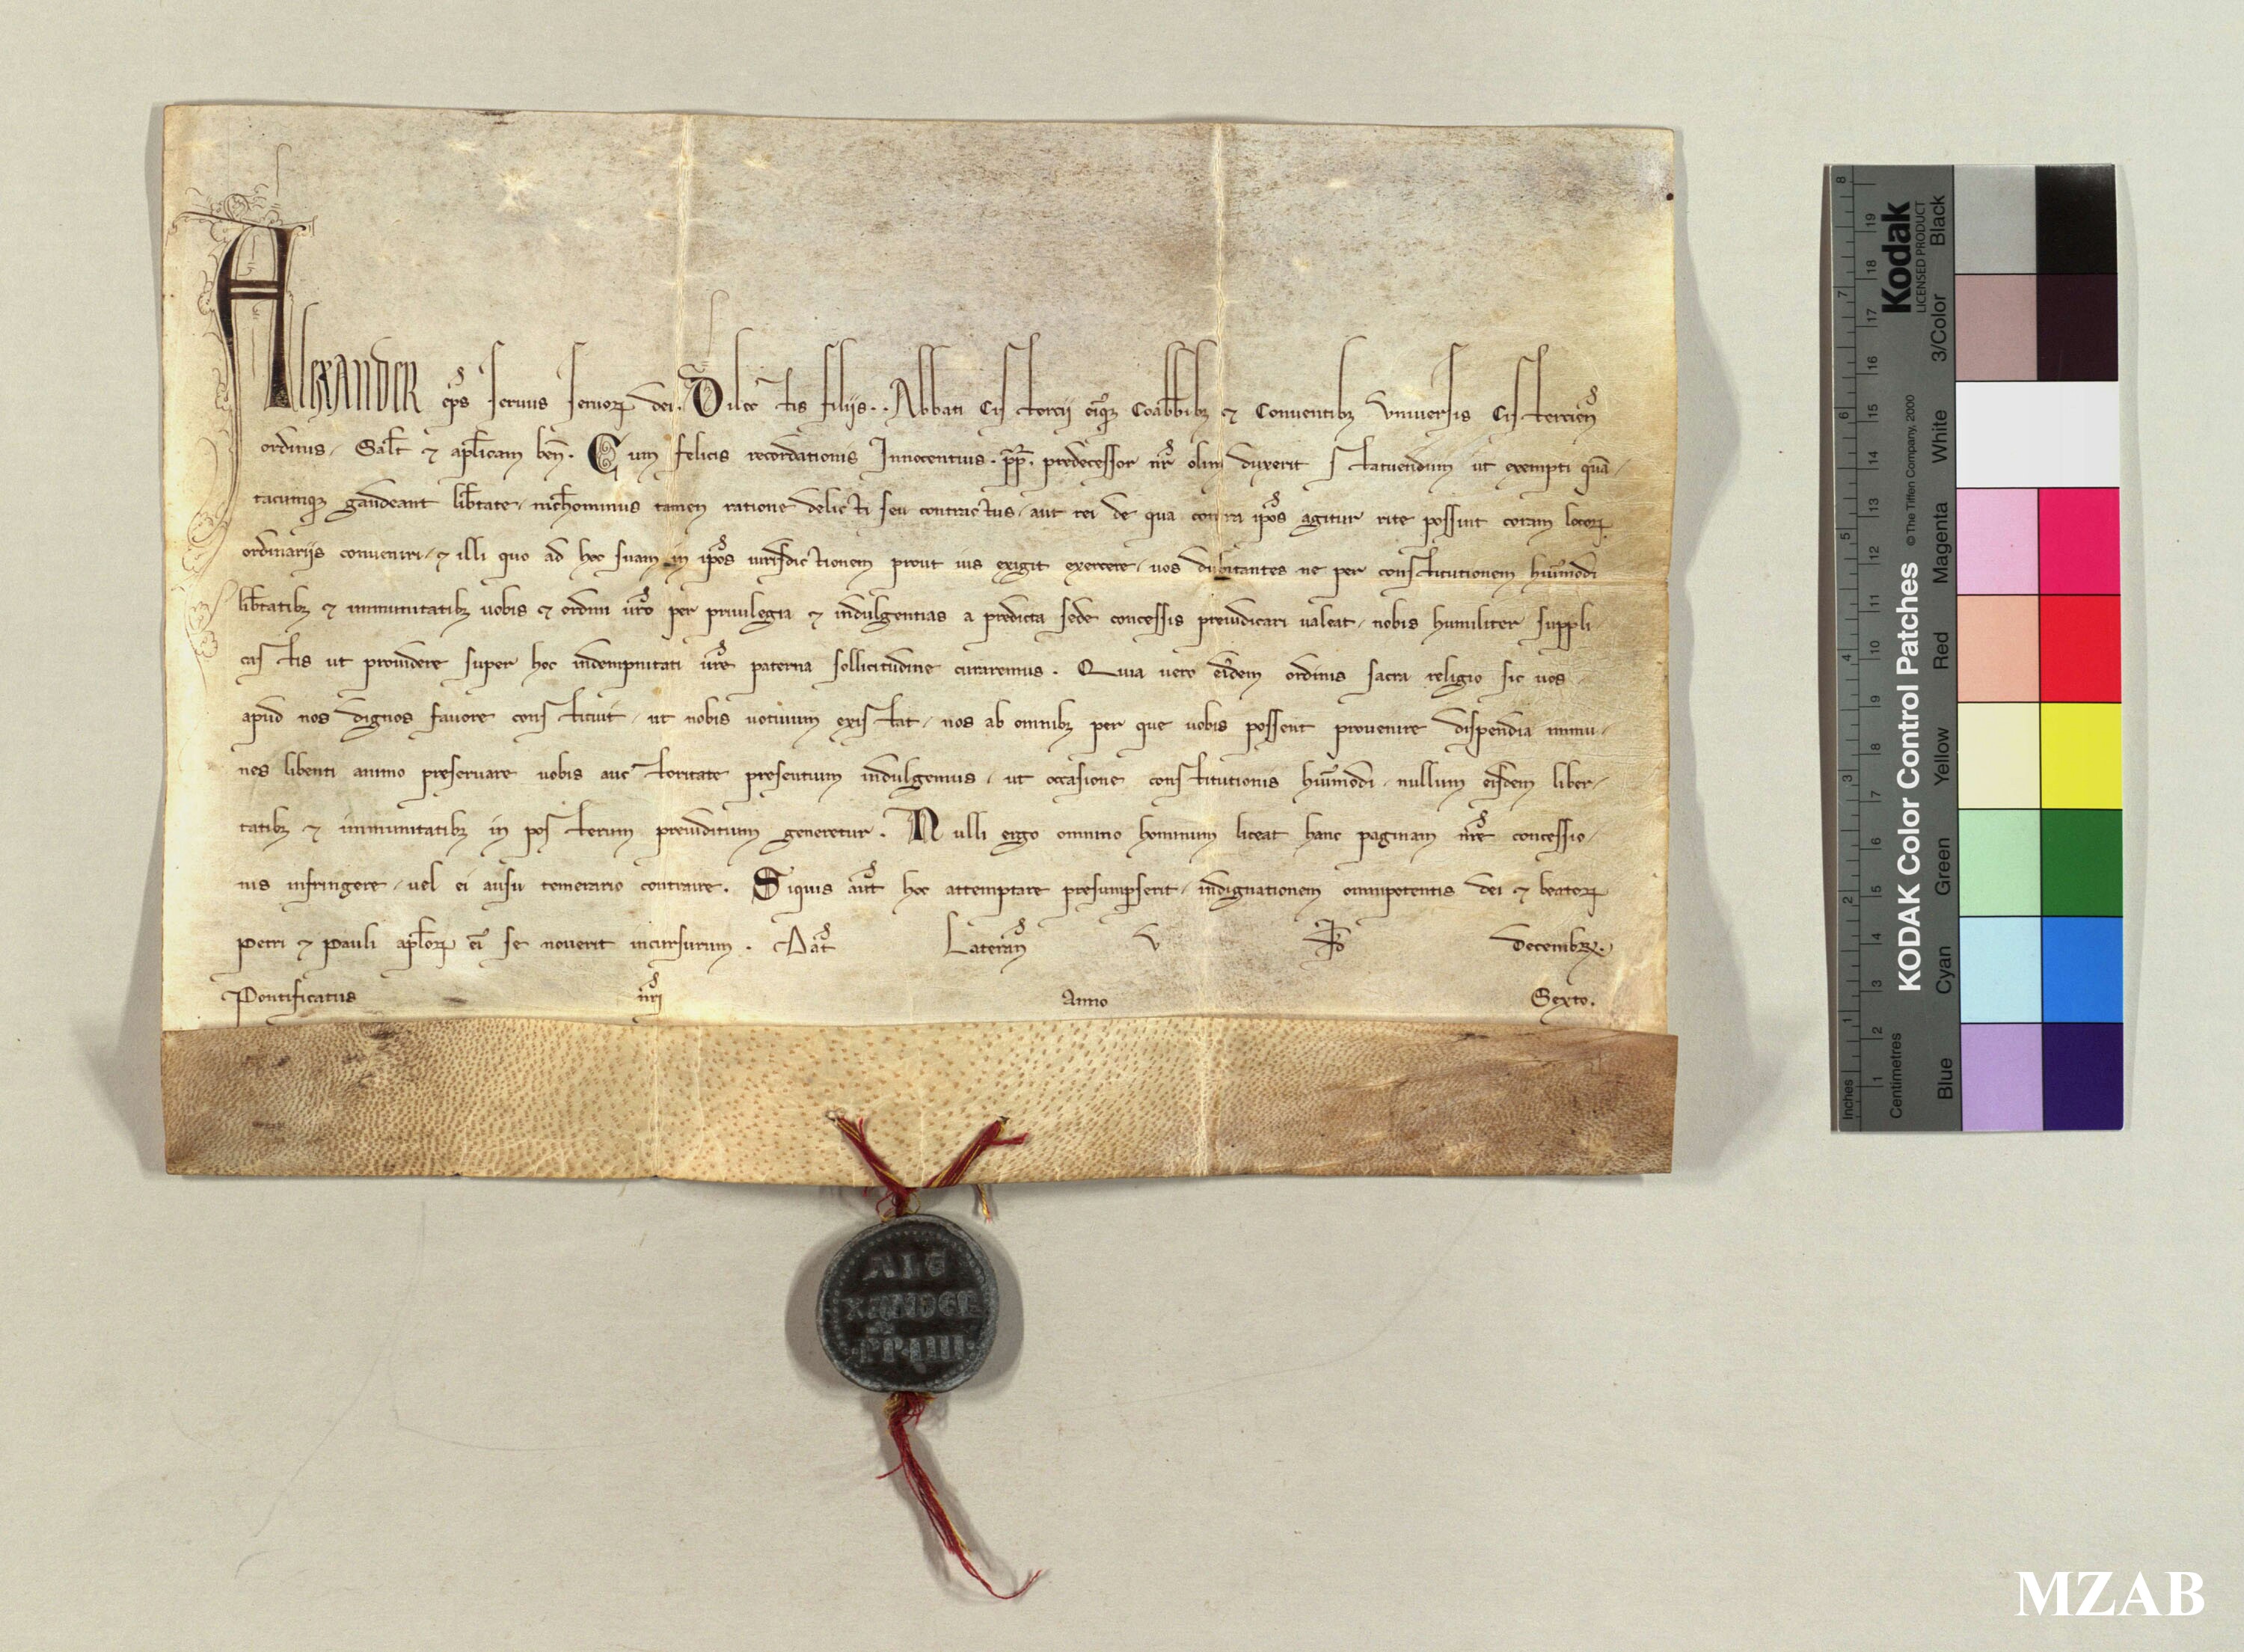 Alexander ep̄s seruus seruoꝝ dei. Dilectis filiis.. Abbati Cistercii eiusq; Coabb̄ib; ⁊ Conuentib; Vniuersis Cistercien̄
ordinis, Sal̄t ⁊ apl̄icam ben̄. Cum felicis recordationis Innocentius. pp̄. predecessor nr̄ olim duxerit statuendum ut exempti quā-
tacumq; gaudeant lib̄tate, nich̄ominus tamen ratione delicti seu contractus, aut rei de qua contra ip̄os agitur rite possint coram locoꝝ
ordinariis conueniri, ⁊ illi quo ad hoc suam in ip̄os iurisdictionem prout ius exigit exercere, uos dubitantes ne per constitutionem hui᷒modi
lib̄tatib; ⁊ immunitatib; uobis ⁊ ordini ur̄o per priuilegia ⁊ indulgentias a predicta sede concessis preiudicari ualeat, nobis humiliter suppli-
castis ut prouidere super hoc indempnitati ur̄e paterna sollicitudine curaremus. Quia uero eiusdem ordinis sacra religio sic uos
apud nos dignos fauore constituit, ut nobis uotiuum existat, uos ab omnib; per que uobis possent prouenire dispendia immu-
nes libenti animo preseruare uobis auctoritate presentium indulgemus, ut occasione constitutionis hui᷒modi, nullum eisdem liber-
tatib; ⁊ immunitatib; in posterum preiuditium generetur. Nulli ergo omnino hominum liceat hanc paginam nr̄e concessio-
nis infringere, uel ei ausu temerario contraire. Siquis aut̄ hoc attemptare presumpserit, indignationem omnipotentis dei ⁊ beatoꝝ
Petri ⁊ Pauli apl̄oꝝ ei᷒ se nouerit incursurum. Dat̄ Lateran̄ V Id̄ Decembꝝ.
Pontificatus nr̄i Anno Sexto.
ALE
XANDER
PP IIII
Inches 1 2 3 4 5 6 7 8
Centimetres 1 2 3 4 5 6 7 8 9 10 11 12 13 14 15 16 17 18 19
KODAK Color Control Patches © The Tiffen Company, 2000
Kodak
LICENSED PRODUCT
Blue Cyan Green Yellow Red Magenta White 3/Color Black
MZAB